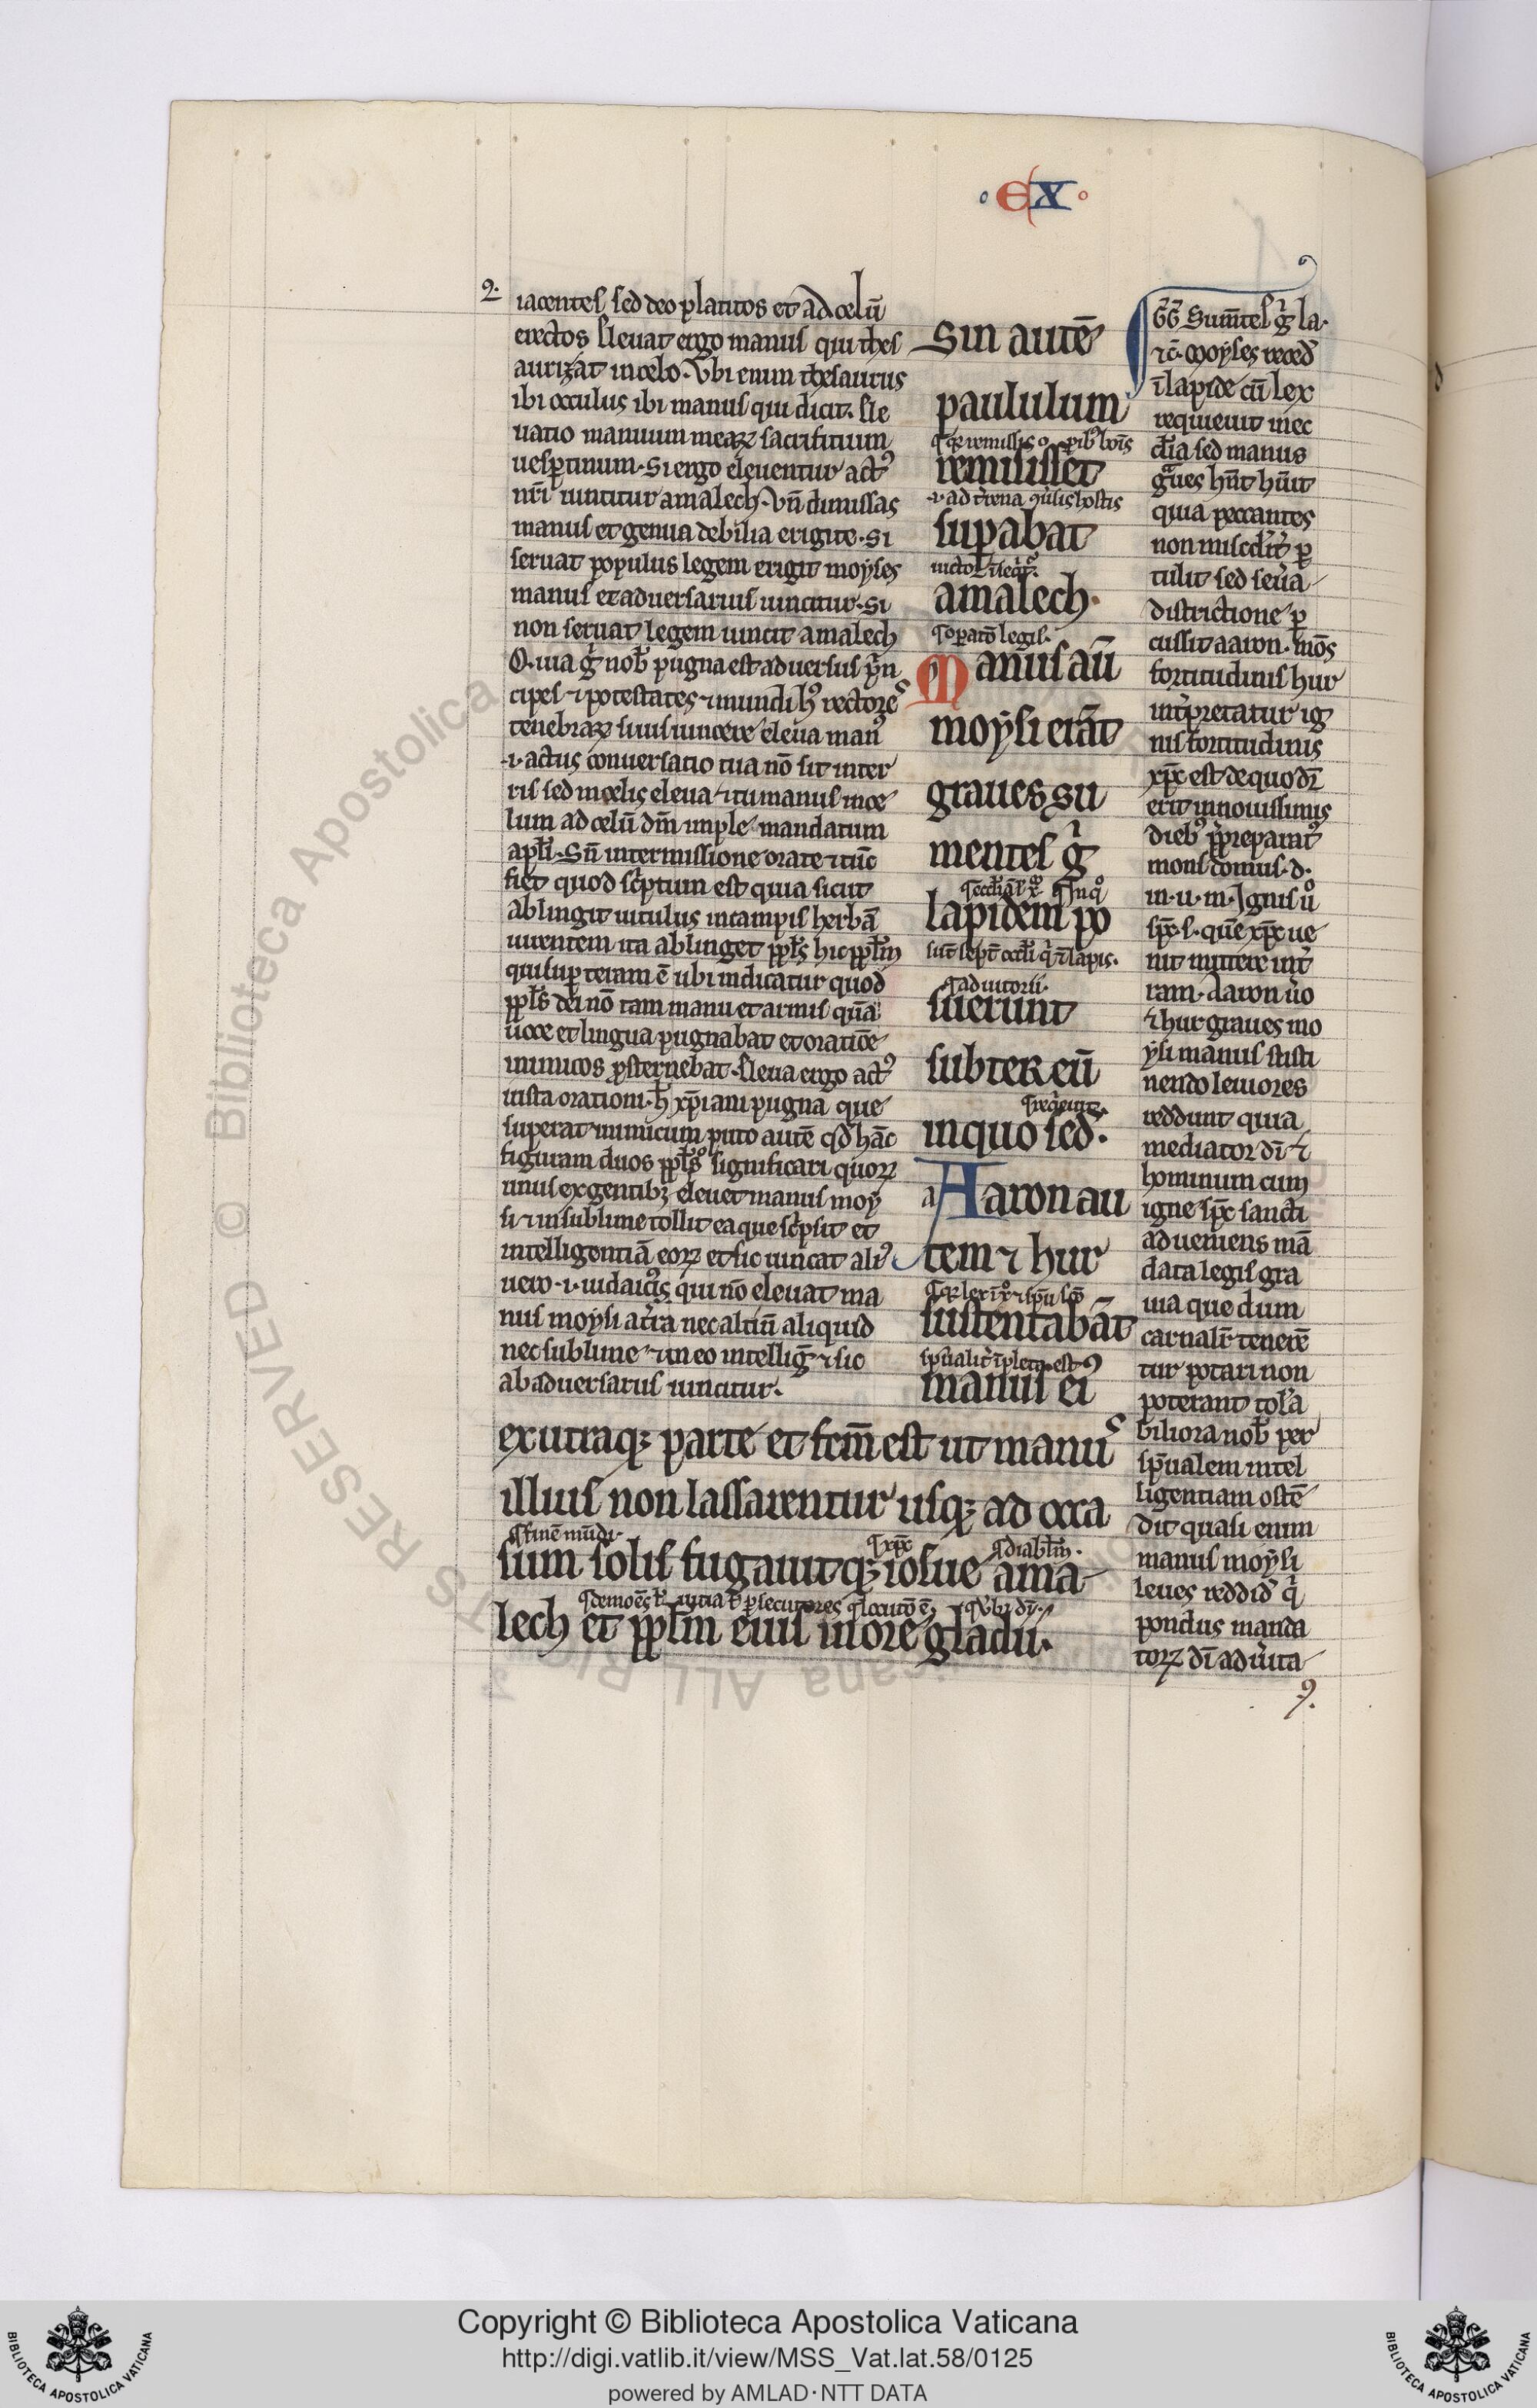 EX
2.
iacentes sed deo platitos et ad celū
erectos Eleuat ergo manus qui thes
aurizat in celo. Vbi enim thesaurus
ibi occulus ibi manus qui dicit. Ele
uatio manuum meaꝝ sacrifitium
uesꝑtinum. Si ergo eleuentur actꝰ
nr̄i uincitur amalech. Vn̄ dimissas
manus et genua debilia erigite. Si
seruat populus legem erigit moyses
manus et aduersarius uincitur. Si
non seruat legem uincit amalech
Q. uia g̾ nob̄ pugna est aduersus p̾n
cipes ⁊ potestates ⁊ mundi hꝰ rectores
tenebraꝝ si uis uincere eleua manꝰ
.i. actus conuersatio tua nō sit in ter
ris sed in celis eleua ⁊ tu manus in ce
lum ad celū dm̄ imple mandatum
apl̄i. Sn̄ intermissione orate ⁊ tūc
fiet quod sc̾ptum est quia sicut
ablingit uitulus in campis herbā
uirentem ita ablinget ppl̄s hic ppl̄m
qui suꝑ terram ē ubi indicatur quod
ppl̄s dei nō tam manu et armis quā
uoce et lingua pugnabat et oratiōe
inimicos ꝓsternebat. Eleua ergo actꝰ
iusta orationi. h̄ xp̄iani pugna que
superat inimicum puto autē qd̄ hāc
figuram duos ppl̄os significari quoꝝ
unus ex gentibꝫ eleuet manus moy
si ⁊ in sublime tollit ea que sc̾psit et
intelligentiā eoꝝ et sic uincat aliꝰ
uero .i. iudaicus qui nō eleuat ma
nus moysi nec altiū aliquid
nec sublime ⁊ in eo intellig̅ ⁊ sic
ab aduersariis uincitur.
Sin autē
paululum
remisisset
suꝑabat
amalech.
Manus aū
moysi erāt
graues su
mentes g̾
lapidem po
suerunt
subter eū
in quo sed̄.
a Aaron au
tem ⁊ hur
sustentabāt
manus eiꝰ
ex utraqꝫ parte et fcm̄ est ut manus
illius non lassarentur usqꝫ ad occa
finē mūdi. xp̄c diabl̄m.
sum solis fugauitqꝫ iosue ama
lech et ppl̄m eius in ore gladii.
GG Sumn̄tes g̾ la.
⁊c̄. Moyses reced̄
ī lapide cū lex
requieuit in ec
cl̄ia sed manus
g̾ues hn̄t hūit
quia peccantes
non mis̄cd̾it̾ ꝑ
tulit sed seu̾a
districtione ꝑ
cussit aaron. mōs
fortitudinis hur
int̾pretatur ig
nis fortitudinis
xp̄c est de quo dr̄
erit in nouissimis
diebꝰ p̾paratꝰ
mons domus .d.
in .u. m. Ignis ū
sp̄c .s. quē xp̄c ue
nit mittere in t̾
ram. Aaron ūo
⁊ hur graues mo
ysi manus susti
nendo leuiores
reddunt quia
mediator dī ⁊
hominum cum
igne sp̄c sancti
adueniens mā
data legis gra
uia que dum
carnalr̄ tenerē
tur portari non
poterant tol̾a
biliora nob̄ per
sp̄ualem intel
ligentiam ostē
dit quasi enim
manus moysi
leues reddid̄ q̾
pondus manda
toꝝ dī ad u̾ita
Copyright © Biblioteca Apostolica Vaticana
http://digi.vatlib.it/view/MSS_Vat.lat.58/0125
powered by AMLAD·NTT DATA
BIBLIOTECA APOSTOLICA VATICANA
BIBLIOTECA APOSTOLICA VATICANA